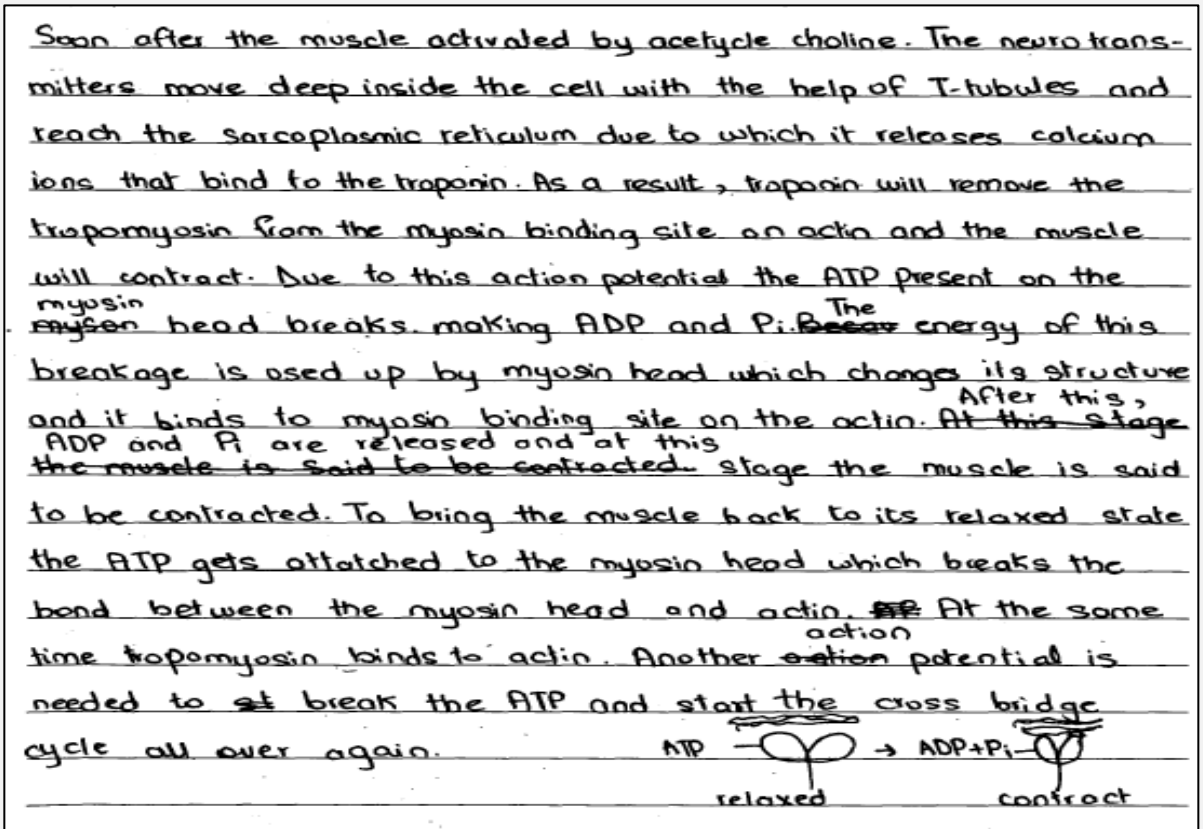 Soon after the muscle activated by acetycle choline. The neurotrans-
mitters move deep inside the cell with the help of T-tubules and
reach the sarcoplasmic reticulum due to which it releases calcium
ions that bind to the troponin. As a result, troponin will remove the
tropomyosin from the myosin binding site on actin and the muscle
will contract. Due to this action potential the ATP present on the
myosin
myson head breaks making ADP and Pi. The energy of this
breakage is used up by myosin head which changes its structure
and it binds to myosin binding site on the actin. At this stage
After this,
ADP and Pi are released and at this
the muscle is said to be contracted. stage the muscle is said
to be contracted. To bring the muscle back to its relaxed state
the ATP gets attatched to the myosin head which breaks the
bond between the myosin head and actin. At the same
time tropomyosin binds to actin. Another action potential is
needed to break the ATP and start the cross bridge
cycle all over again. ATP → ADP+Pi
relaxed contract